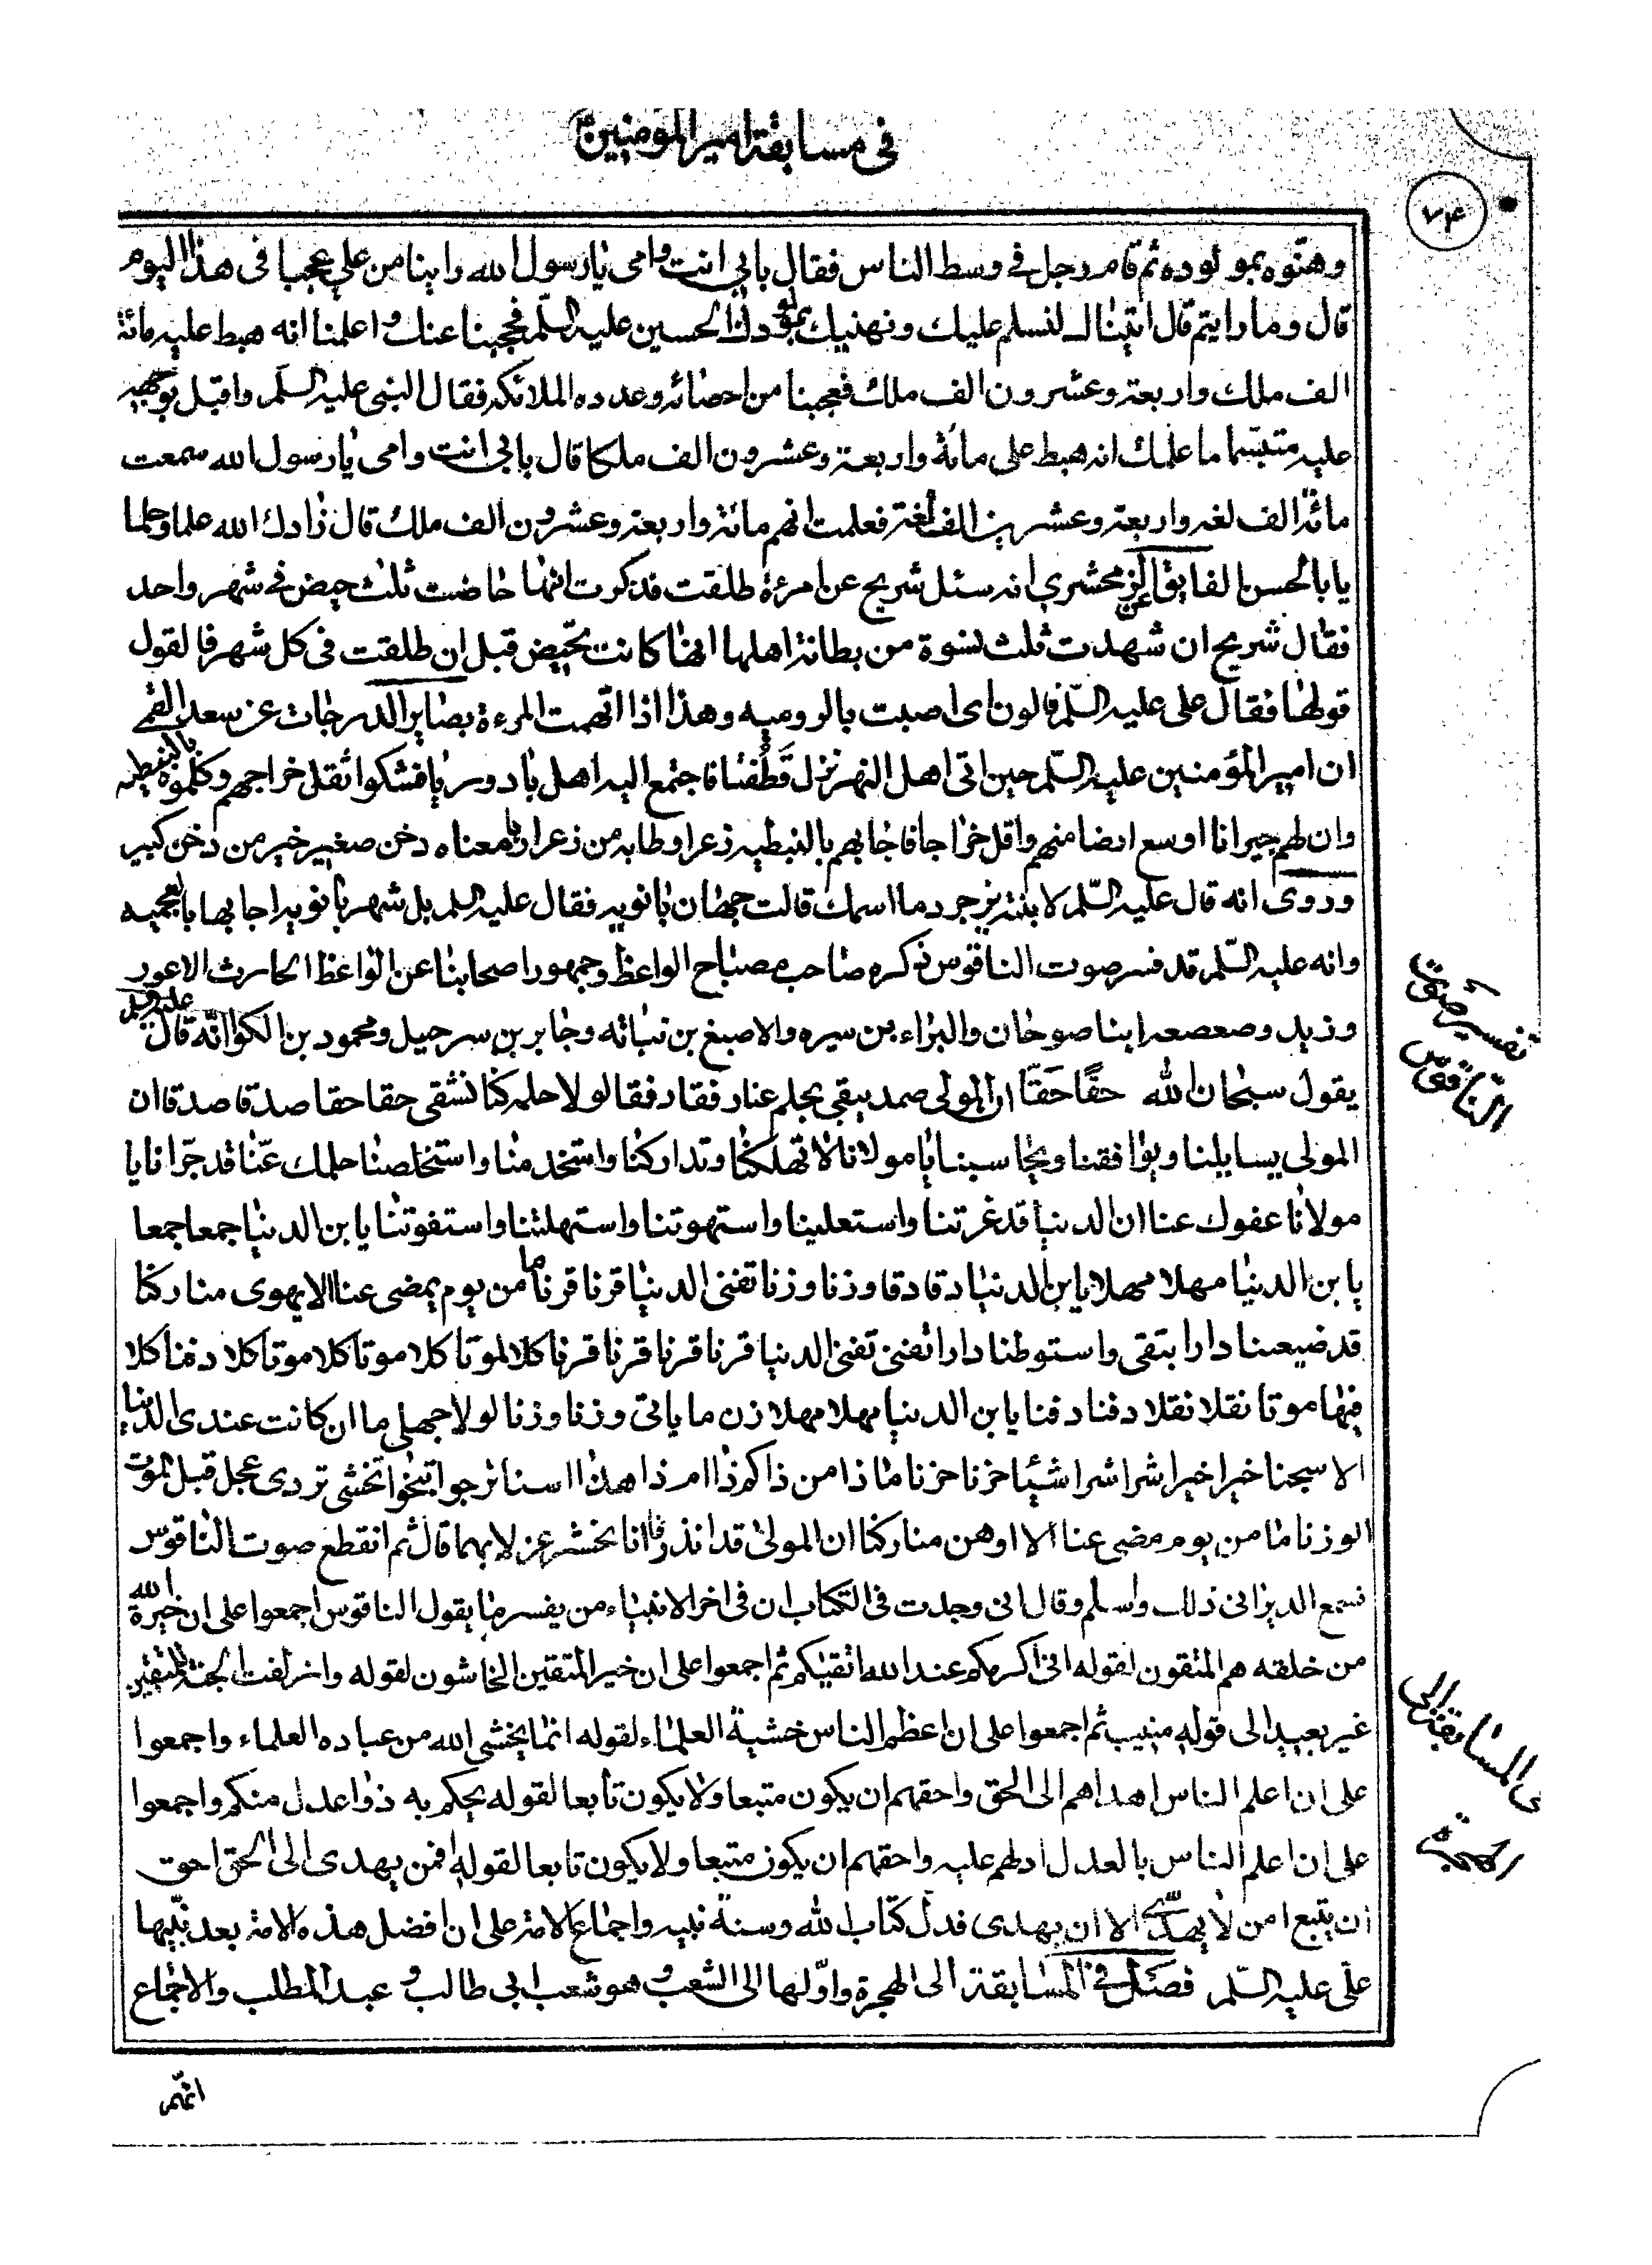 فى مسابقة امير المؤمنين
٧٤
وهنّوه بمولوده ثم قام رجل فى وسط الناس فقال بابى انت وامى يا رسول الله راينا من على عجبا فى هذا اليوم
قال وما رايتم قال اتينا لنسلم عليك ونهنيك بمولودك الحسين عليه السّلم فحجبنا عنك واعلمنا انه هبط عليه مائة
الف ملك واربعة وعشرون الف ملك فعجبنا من احصائه وعدده الملائكة فقال النبى عليه السلم واقبل بوجهه
عليه متبسّما ما علمك انه هبط على مائة واربعة وعشرون الف ملكا قال بابى انت وامى يا رسول الله سمعت
مائة الف لغه واربعة وعشرين الف لغة فعلمت انهم مائة واربعة وعشرون الف ملك قال زادك الله علما وحلما
يا ابا الحسن الفايق عن الزمخشري انه سئل شريح عن امرءة طلقت فذكرت انها حاضت ثلث حيض فى شهر واحد
فقال شريح ان شهدت ثلث نسوة من بطانة اهلها انها كانت تحيض قبل ان طلقت فى كل شهر فالقول
قولها فقال على عليه السّلم قالون اى اصبت بالروميه وهذا اذا اتهمت المرءة بصاير الدرجات عن سعد القمى
ان امير المؤمنين عليه السّلم حين اتى اهل النهر نزل قَطُفتا فاجتمع اليه اهل بادوريا فشكوا ثقل خراجهم وكلموه بالنبطيه
وان لهم جيرانا اوسع ارضا منهم واقل خراجا فاجابهم بالنبطيه زعرا وطابه من زعرا ربا معناه دخن صغير خير من دخن كبير
وروى انه قال عليه السّلم لابنته يزجرد ما اسمك قالت جهان بانويه فقال عليه السلم بل شهر بانويه اجابها بالعجميه
وانه عليه السّلم قد فسر صوت الناقوس ذكره صاحب مصباح الواعظ وجمهور اصحابنا عن الواعظ الحارث الاعور
وزيد وصعصعه ابنا صوحان والبراء بن سيره والاصبغ بن نباته وجابر بن سرجيل ومحمود بن الكوا انّه قال عليه السلم
يقول سبحان الله حقًا حَقّا ان المولى صمد يبقى يحلم عنا رفقا رفقا لولا حلمه كنا نشقى حقا حقا صدقا صدقا ان
المولى يسايلنا ويوافقنا ويحاسبنا يا مولانا لا تهلكنا وتداركنا واستخدمنا واستخلصنا حلمك عنّا قد جرّانا يا
مولانا عفوك عنا ان الدنيا قد غرتنا واستعلينا واستهوتنا واستهلتنا واستفوتنا يا بن الدنيا جمعا جمعا
يا بن الدنيا مهلا مهلا يا بن الدنيا دقا دقا وزنا وزنا تفنى الدنيا قرنا قرنا ما من يوم يمضى عنا الا يهوى منا ركنا
قد ضيعنا دارا تبقى واستوطنا دارا تفنى تفنى الدنيا قرنا قرنا قرنا قرنا كلا لموتا كلا موتا كلا موتا كلا دفنا كلا
فيها موتا نقلا نقلا دفنا دفنا يا بن الدنيا مهلا مهلا زن ما ياتى وزنا وزنا لولا جهلى ما ان كانت عندى الدنيا
الا سجنا خيرا خيرا شرا شرا شيئا حزنا حزنا ماذا من ذا كم ذا ام ذا هذا اسنا نرجوا تنجوا تخشى تردى عجل قبل الموت
الوزنا ما من يوم مضى عنا الا اوهن منا ركنا ان المولى قد انذرنا انا نحشر عزلا بهما قال ثم انقطع صوت الناقوس
فسمع الديرانى ذلك واسلم وقال انى وجدت فى الكتاب ان فى اخر الانبياء من يفسر ما يقول الناقوس اجمعوا على ان خيرة الله
من خلقه هم المتقون لقوله ان اكرمكم عند الله اتقيكم ثم اجمعوا على ان خير المتقين الخاشون لقوله وازلفت الجنة للمتقين
غير بعيد الى قوله منيب ثم اجمعوا على ان اعظم الناس خشية العلماء لقوله انما يخشى الله من عباده العلماء واجمعوا
على ان اعلم الناس اهداهم الى الحق واحقهم ان يكون متبعا ولا يكون تابعا لقوله يحكم به ذوا عدل منكم واجمعوا
على ان اعلم الناس بالعدل ادلهم عليه واحقهم ان يكون متبعا ولا يكون تابعا لقوله افمن يهدى الى الحق احق
ان يتبع امن لا يهدّى الا ان يهدى فدل كتاب الله وسنة نبيه واجماع الامة على ان افضل هذه الامة بعد نبيها
على عليه السّلم فصل فى المسابقة الى الهجرة واوّلها الى الشعب وهو شعب ابى طالب و عبد المطلب والاجماع
تفسير صوت
الناقوس
المسابقة الى
الهجرة
انّهم